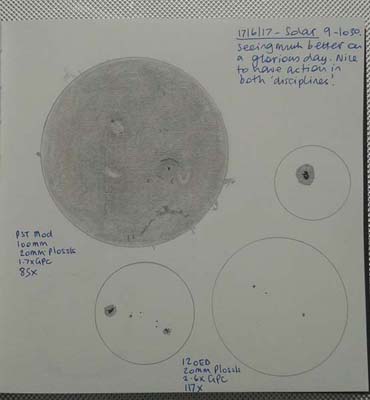 17/6/17 - Solar 9-1030.
Seeing much better on
a glorious day. Nice
to have action in
both 'disciplines'!
PST Mod
100mm
20mm Plossls
1.7x GPC
85x
120ED
20mm Plossls
2.6x GPC
117x